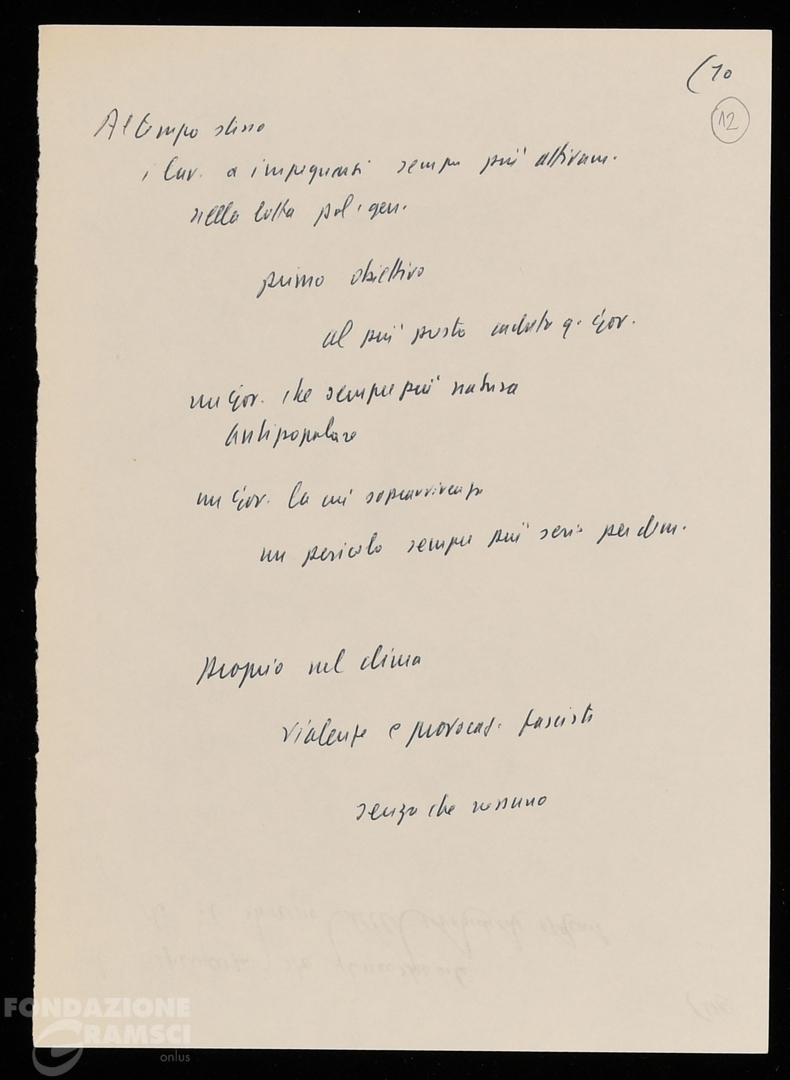 (10
12
Al tempo stesso
i lav. a impegnarsi sempre più attivam.
nella lotta pol. gen.
primo obiettivo
al più presto caduta q. Gov.
un Gov. che sempre più natura
antipopolare
un Gov. la cui sopravvivenza
un pericolo sempre più serio per dem.
proprio nel clima
violenze e provocaz. fasciste
senza che nessuno
FONDAZIONE
GRAMSCI
onlus